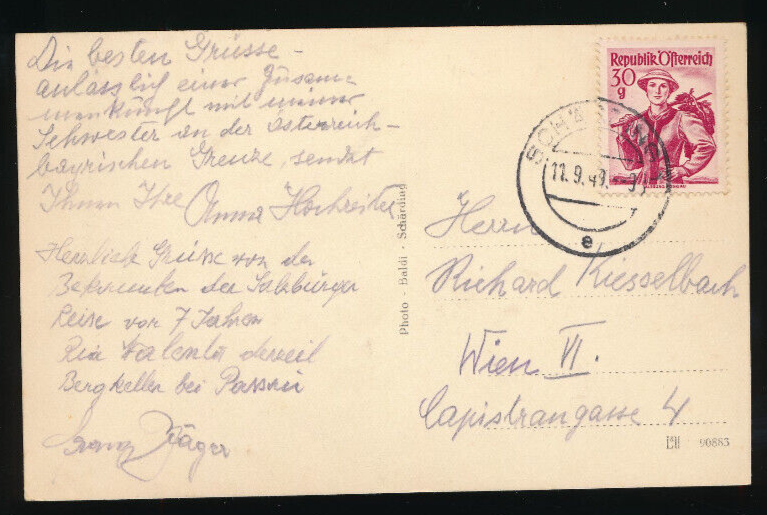 Die besten Grüsse –
anlässlich einer Zusam-
menkunft mit meiner
Schwester an der österreich-
bayrischen Grenze, sendet
Ihnen Ihre Anna Hochreiter
Herzliche Grüsse von der
Bekannten der Salzburger
Reise vor 7 Jahren
Ria derweil
Bergkeller bei Passau
Franz Jäger
Photo - Baldi - Schärding
Republik Österreich
30
g
SCH
11.9.49
e
Herrn
Richard Kiesselbach
Wien VI.
Capistrangasse 4
90883